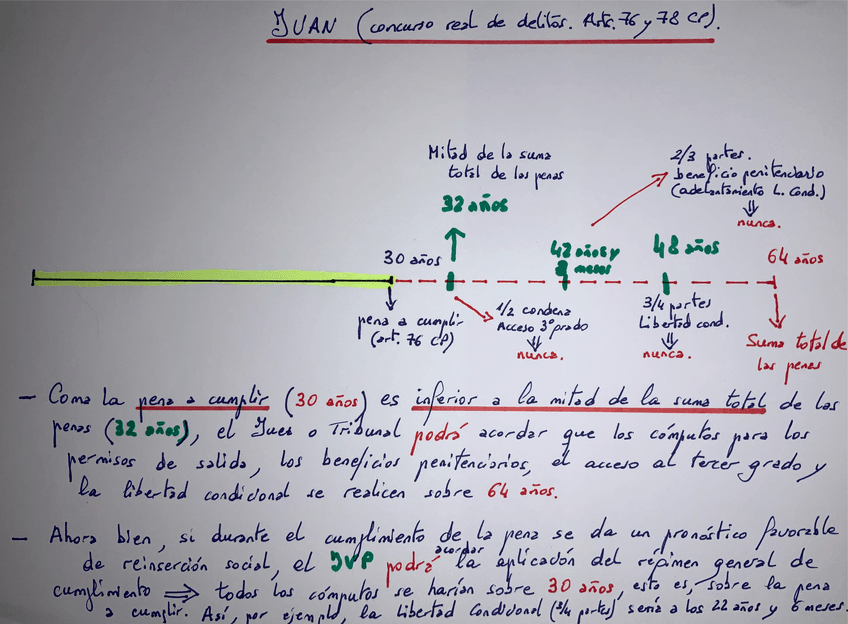 JUAN (concurso real de delitos. Arts. 76 y 78 CP).
Mitad de la suma
total de las penas
32 años
2/3 partes.
beneficio penitenciario
(adelantamiento L. Cond.)
nunca.
30 años
42 años y
8 meses
48 años
64 años
pena a cumplir
(art. 76 CP)
1/2 condena
Acceso 3º grado
nunca.
3/4 partes
Libertad cond.
nunca.
Suma total de
las penas
- Como la pena a cumplir (30 años) es inferior a la mitad de la suma total de las
penas (32 años), el Juez o Tribunal podrá acordar que los cómputos para los
permisos de salida, los beneficios penitenciarios, el acceso al tercer grado y
la libertad condicional se realicen sobre 64 años.
- Ahora bien, si durante el cumplimiento de la pena se da un pronóstico favorable
de reinserción social, el JVP podrá acordar la aplicación del régimen general de
cumplimiento ⇒ todos los cómputos se harían sobre 30 años, esto es, sobre la pena
a cumplir. Así, por ejemplo, la Libertad Condicional (3/4 partes) sería a los 22 años y 6 meses.